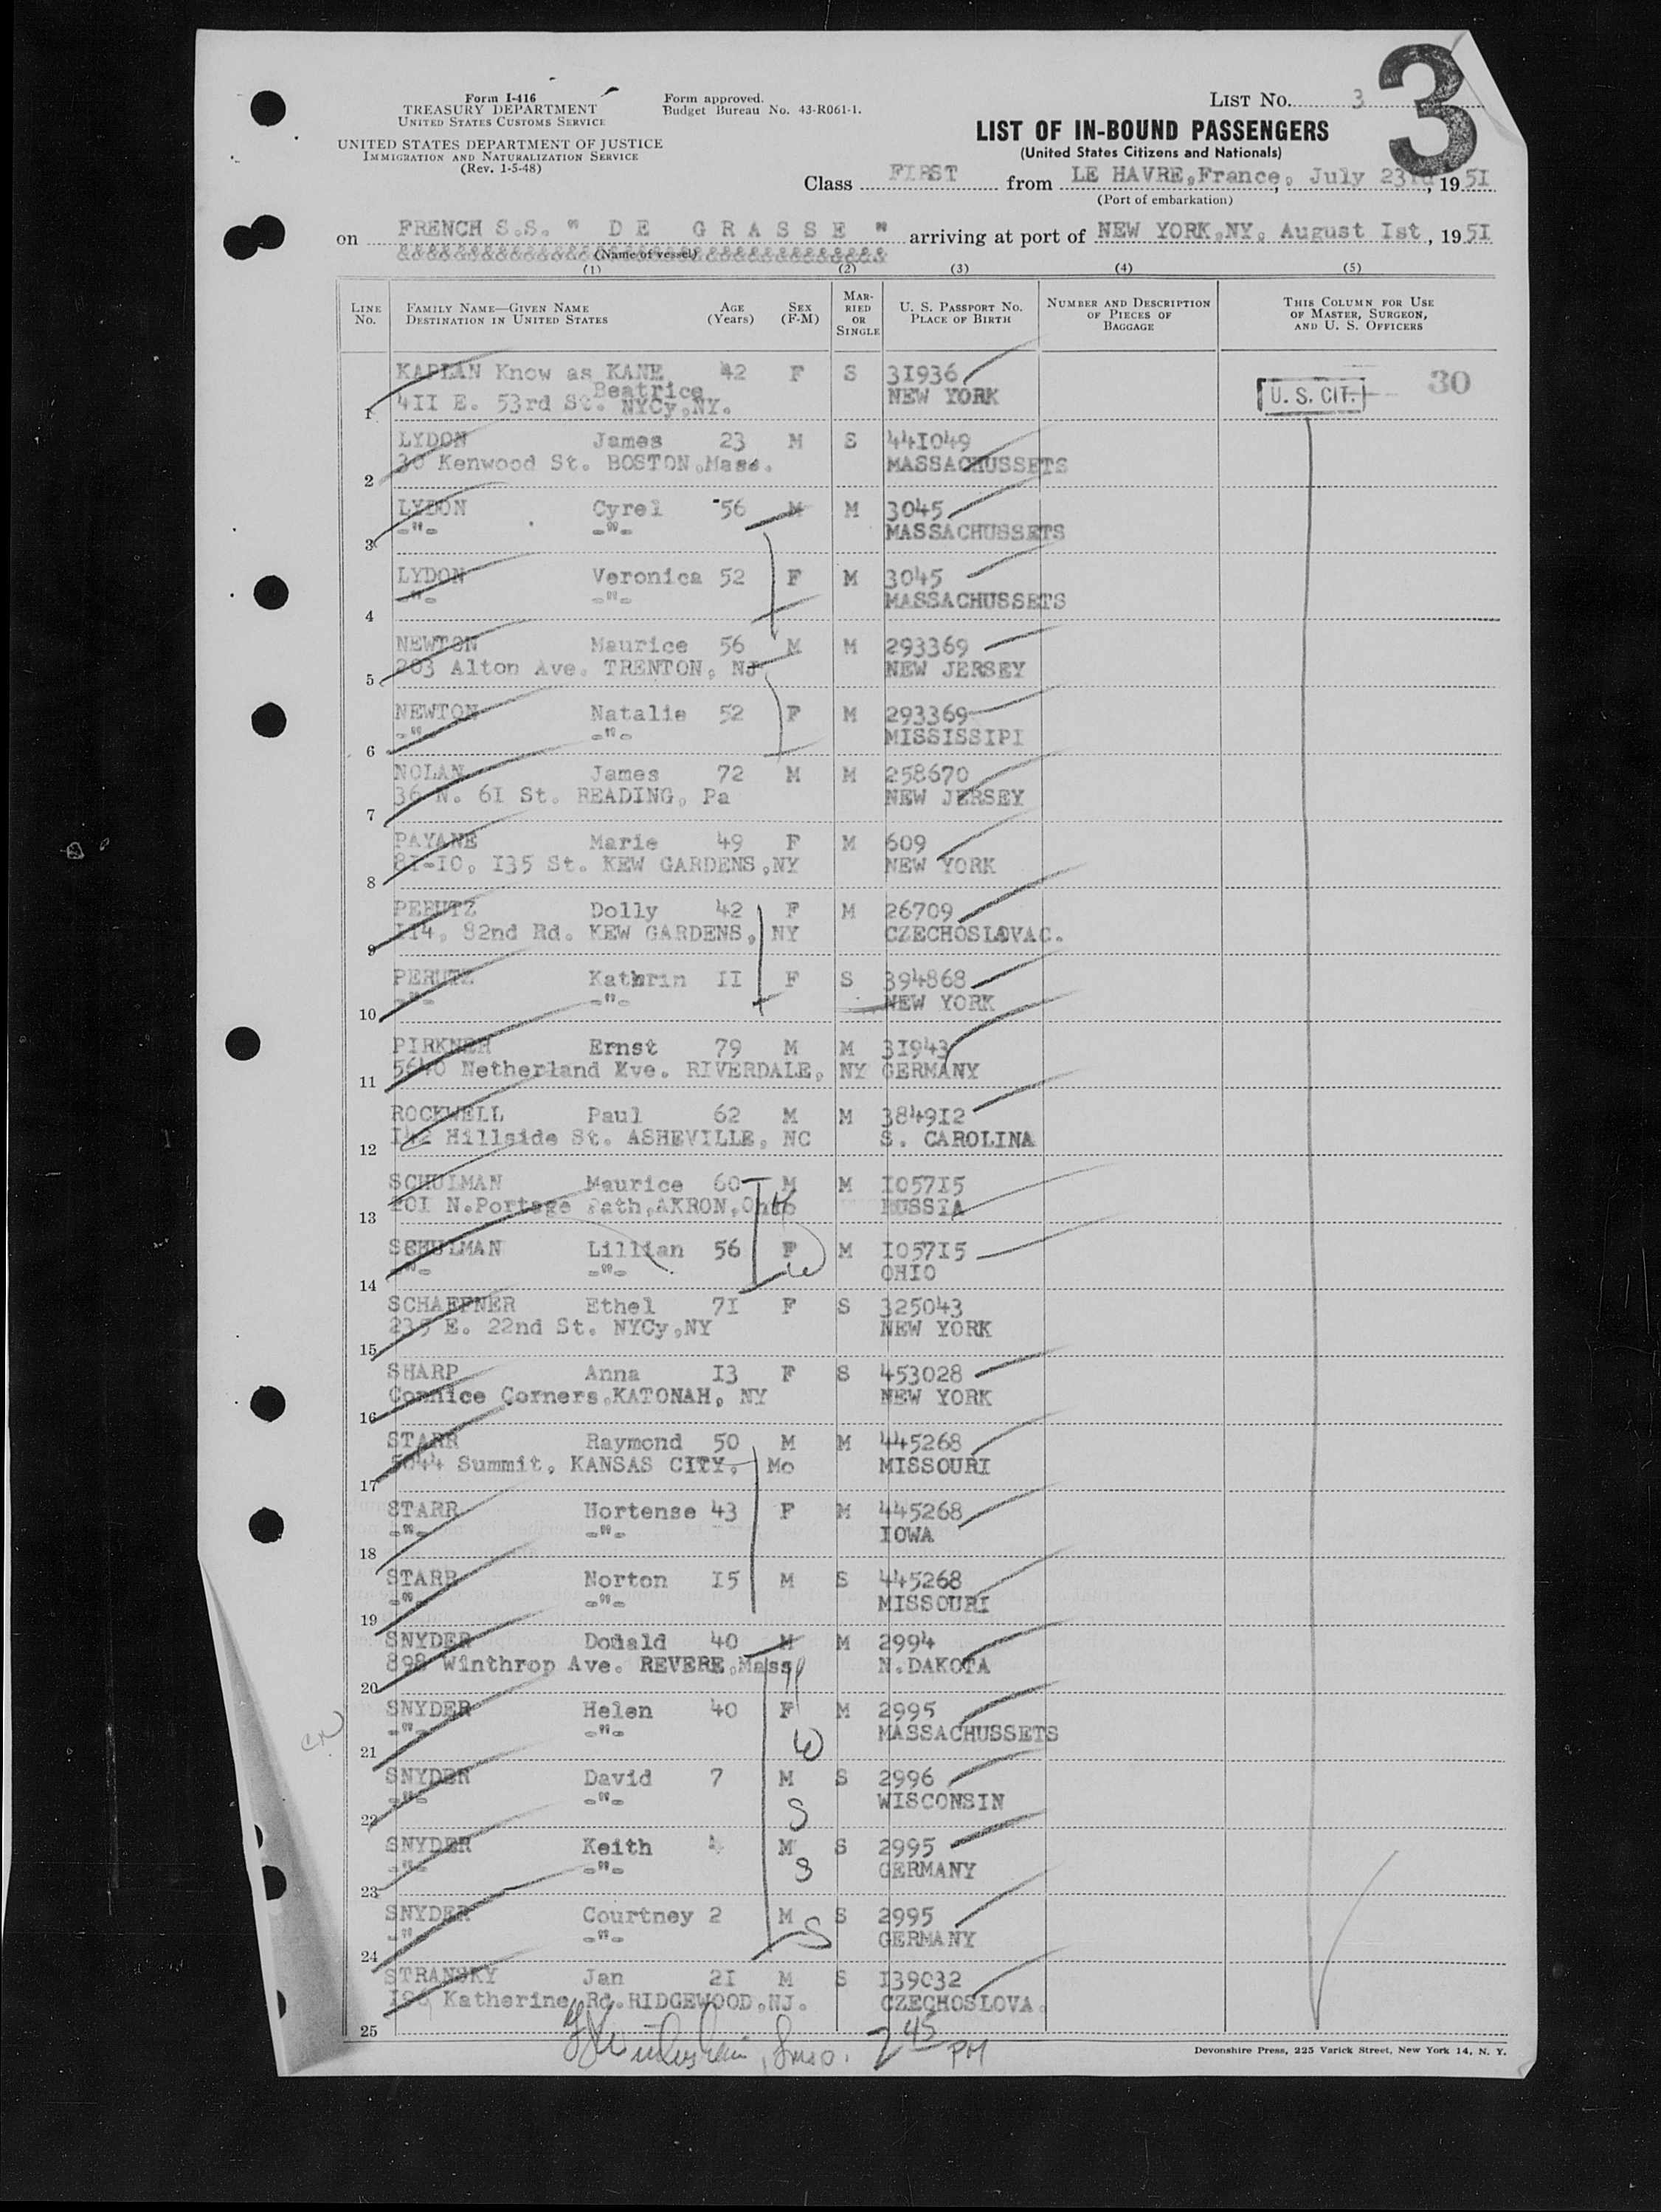 Form I-416
TREASURY DEPARTMENT
UNITED STATES CUSTOMS SERVICE
UNITED STATES DEPARTMENT OF JUSTICE
IMMIGRATION AND NATURALIZATION SERVICE
(Rev. 1-5-48)
Form approved.
Budget Bureau No. 43-R061-1.
LIST NO. 3
3
LIST OF IN-BOUND PASSENGERS
(United States Citizens and Nationals)
Class FIRST from LE HAVRE,France, July 23rd, 1951
(Port of embarkation)
on FRENCH S.S. " DE GRASSE " arriving at port of NEW YORK,NY, August Ist, 1951
(Name of vessel)
(1) (2) (3) (4) (5)
LINE No. FAMILY NAME—GIVEN NAME DESTINATION IN UNITED STATES AGE (Years) SEX (F-M) MARRIED OR SINGLE U. S. PASSPORT NO. PLACE OF BIRTH NUMBER AND DESCRIPTION OF PIECES OF BAGGAGE THIS COLUMN FOR USE OF MASTER, SURGEON, AND U. S. OFFICERS
KAPLAN Know as KANE 42 F S 31936
Beatrice
1 411 E. 53rd St. NYCy,NY. NEW YORK U. S. CIT. 30
LYDON James 23 M S 441049
2 30 Kenwood St. BOSTON,Mass. MASSACHUSSETS
LYDON Cyrel 56 M M 3045
3 -"- -"- MASSACHUSSETS
LYDON Veronica 52 F M 3045
4 -"- -"- MASSACHUSSETS
NEWTON Maurice 56 M M 293369
5 203 Alton Ave. TRENTON, NJ NEW JERSEY
NEWTON Natalie 52 F M 293369
6 -"- -"- MISSISSIPI
NOLAN James 72 M M 258670
7 36 N. 6I St. READING, Pa NEW JERSEY
PAYANE Marie 49 F M 609
8 81-10, 135 St. KEW GARDENS,NY NEW YORK
PERUTZ Dolly 42 F M 26709
9 114, 82nd Rd. KEW GARDENS, NY CZECHOSLOVAC.
PERUTZ Kathrin II F S 394868
10 -"- -"- NEW YORK
PIRKNER Ernst 79 M M 31943
11 5640 Netherland Ave. RIVERDALE, NY GERMANY
ROCKWELL Paul 62 M M 384912
12 142 Hillside St. ASHEVILLE, NC S. CAROLINA
SCHULMAN Maurice 60 M M 105715
13 201 N.Portage Path,AKRON,Ohio RUSSIA
SCHULMAN Lillian 56 F M 105715
14 -"- -"- W OHIO
SCHAEFNER Ethel 71 F S 325043
15 235 E. 22nd St. NYCy,NY NEW YORK
SHARP Anna 13 F S 453028
16 Connice Corners,KATONAH, NY NEW YORK
STARR Raymond 50 M M 445268
17 5044 Summit, KANSAS CITY, Mo MISSOURI
STARR Hortense 43 F M 445268
18 -"- -"- IOWA
STARR Norton 15 M S 445268
19 -"- -"- MISSOURI
SNYDER Donald 40 M M 2994
20 898 Winthrop Ave. REVERE,Mass N.DAKOTA
SNYDER Helen 40 F M 2995
21 -"- -"- W MASSACHUSSETS
SNYDER David 7 M S 2996
22 -"- -"- S WISCONSIN
SNYDER Keith 4 M S 2995
23 -"- -"- S GERMANY
SNYDER Courtney 2 M S 2995
24 -"- -"- S GERMANY
STRANSKY Jan 21 M S 139032
Katherine Rd.RIDGEWOOD,NJ. CZECHOSLOVA.
25
2 45 PM
Devonshire Press, 225 Varick Street, New York 14, N. Y.